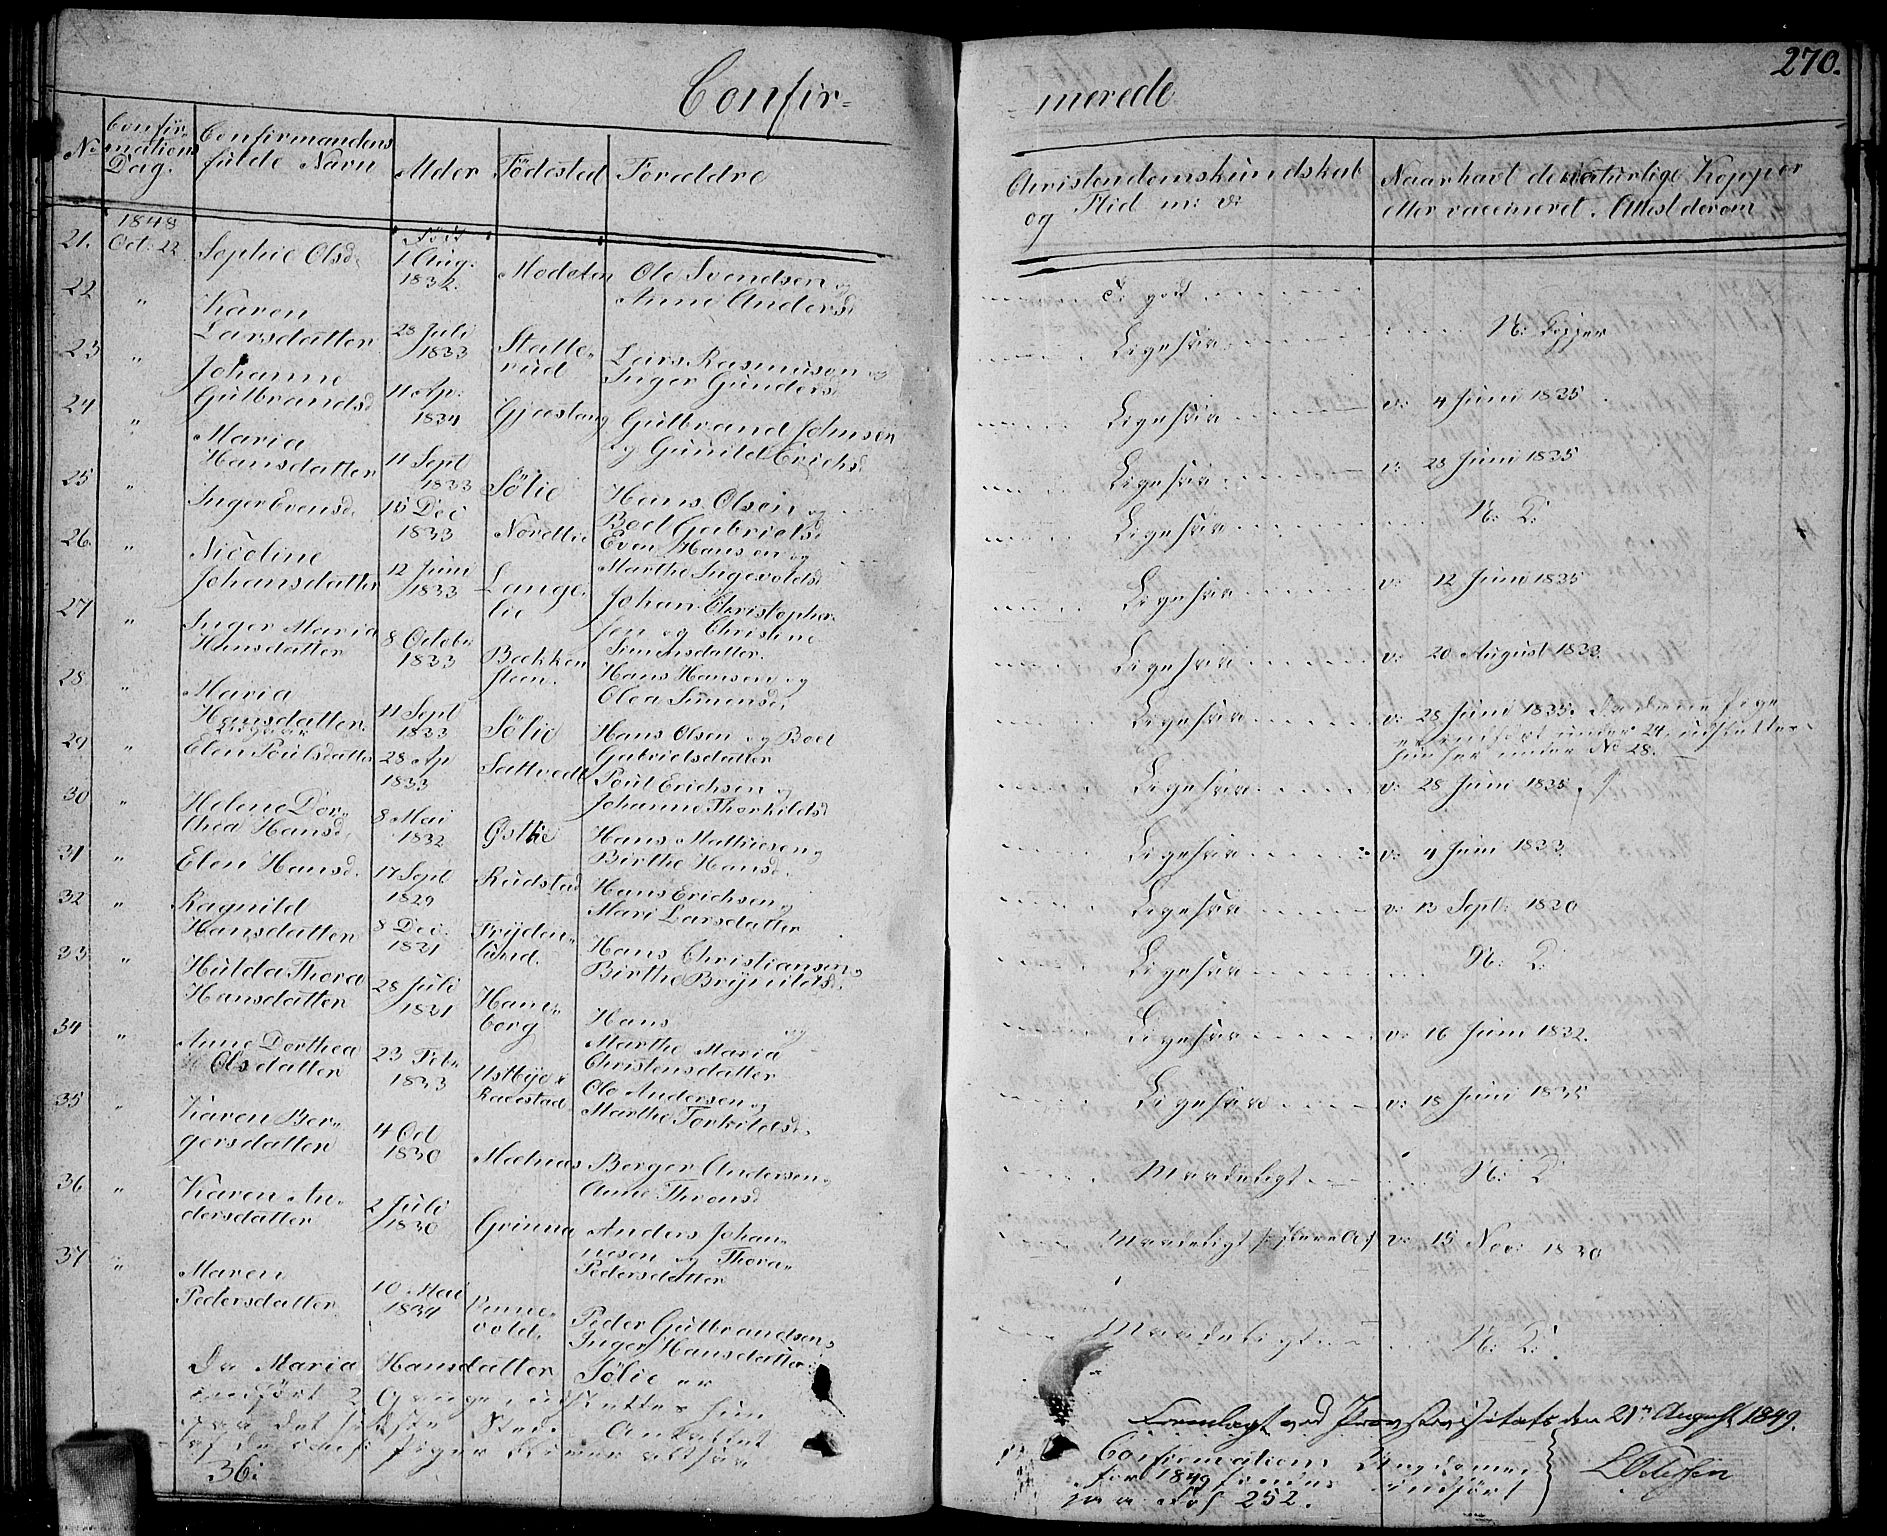 270.
Confir=
merede
No
Confir-
mations
Dag.
Confirmandens
fulde Navn
Alder
Födested
Forældre
Christendomskundskab
og Flid m: v:
Naar havt de naturlige Kopper
eller vaccineret. Attest derom
21. 1848 Oct: 22 Sophie Olsd. Född 1 Aug. 1832. Ole Svendsen og
Anne Andersd
Do god
22 " Karen
Larsdatter 28 Juli 1833 Statte-
rud Lars Rasmusen og
Inger Gundersd
Ligesaa N: Copper
23 " Johanne
Gulbrandsd 11 Ap: 1834 Gjæstang Gulbrand Johnsen
og Gunild Erichsd
Ligesaa v: 4 Juni 1835
24 " Maria
Hansdatter 11 Sept 1833 Sölie Hans Olsen og
Boel Gabrielsd
Ligesaa v: 28 Juni 1835
25 " Inger Evensd. 15 Dec 1833 Nordlie Even Hansen og
Marthe Ingevoldsd
Ligesaa N: C:
26. " Nicoline
Johansdatter 12 Juni 1833 Lange-
lie Johan Christopher-
sen og Christine
Simensdatter.
Ligesaa v: 12 Juni 1835
27 " Inger Maria
Hansdatter 8 Octobr 1833 Bækken
steen. Hans Hansen og
Olea Simensd.
Ligesaa v: 20 August 1833
28 " Maria
Hansdatter 11 Sept 1833 Sölie Hans Olsen og Boel
Gabrielsdatter
Ligesaa v: 28 Juni 1835. Da denne Pige
er indfört under 24, udslettes
hun her under No 28.
29 " Elen Poulsdatter 28 Ap 1833 Sattvedt Poul Erichsen og
Johanne Thorkildsd
Ligesaa v: 28 Juni 1835.
30 " Helene Dor-
thea Hansd. 8 Mai 1832 Østlie Hans Mathiesen og
Birthe Hansd.
Ligesaa v: 4 Juni 1833
31 " Elen Hansd. 17 Sept 1829 Rudstad Hans Erichsen og
Mari Larsdatter
Ligesaa v: 13 Sept: 1830
32 " Ragnild
Hansdatter 8 Dec: 1831 Frijden-
lund. Hans Christiansen og
Birthe Brynildsd.
Ligesaa N: C:
33 " Hulda Thora
Hansdatter 28 Juli 1831 Hane-
borg Hans og
Marthe Maria
Christensdatter
Ligesaa v: 16 Juni 1832.
34 " Anne Dorthea
Olsdatter 23 Febr 1833 Ole Andersen og
Marthe Torkildsd.
Ligesaa v: 18 Juni 1835
35 " Karen Ber-
gersdatter 4 Oct 1830 Berger Andersen og
Anne Thronsd
Maadeligt N: C:
36 " Karen An-
dersdatter 2 Juli 1830 Grinna Anders Johan-
nesen og Thora
Pedersdatter
Maadeligt v: 15 Nov: 1830
37 " Maren
Pedersdatter 10 Mai 1834 Venne-
vold. Peder Gulbrandsen og
Inger Hansdatter.
Maadeligt N: C:
Da Maria Hansdatter Sölie er
indfört 2 Gange, udslettes hun
paa det sidste Sted. Antallet
af Piger bliver altsaa
36.
Fremlagt ved Provstevisitats den 21de August 1849.
Confirmations
for 1849 findes indfört
paa Fol 252.